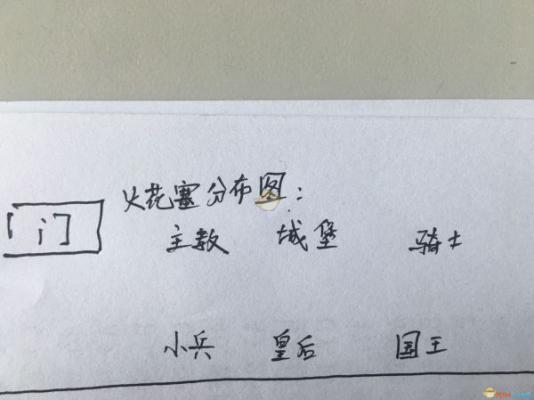 火花塞分布图：
门
主教 城堡 骑士
小兵 皇后 国王